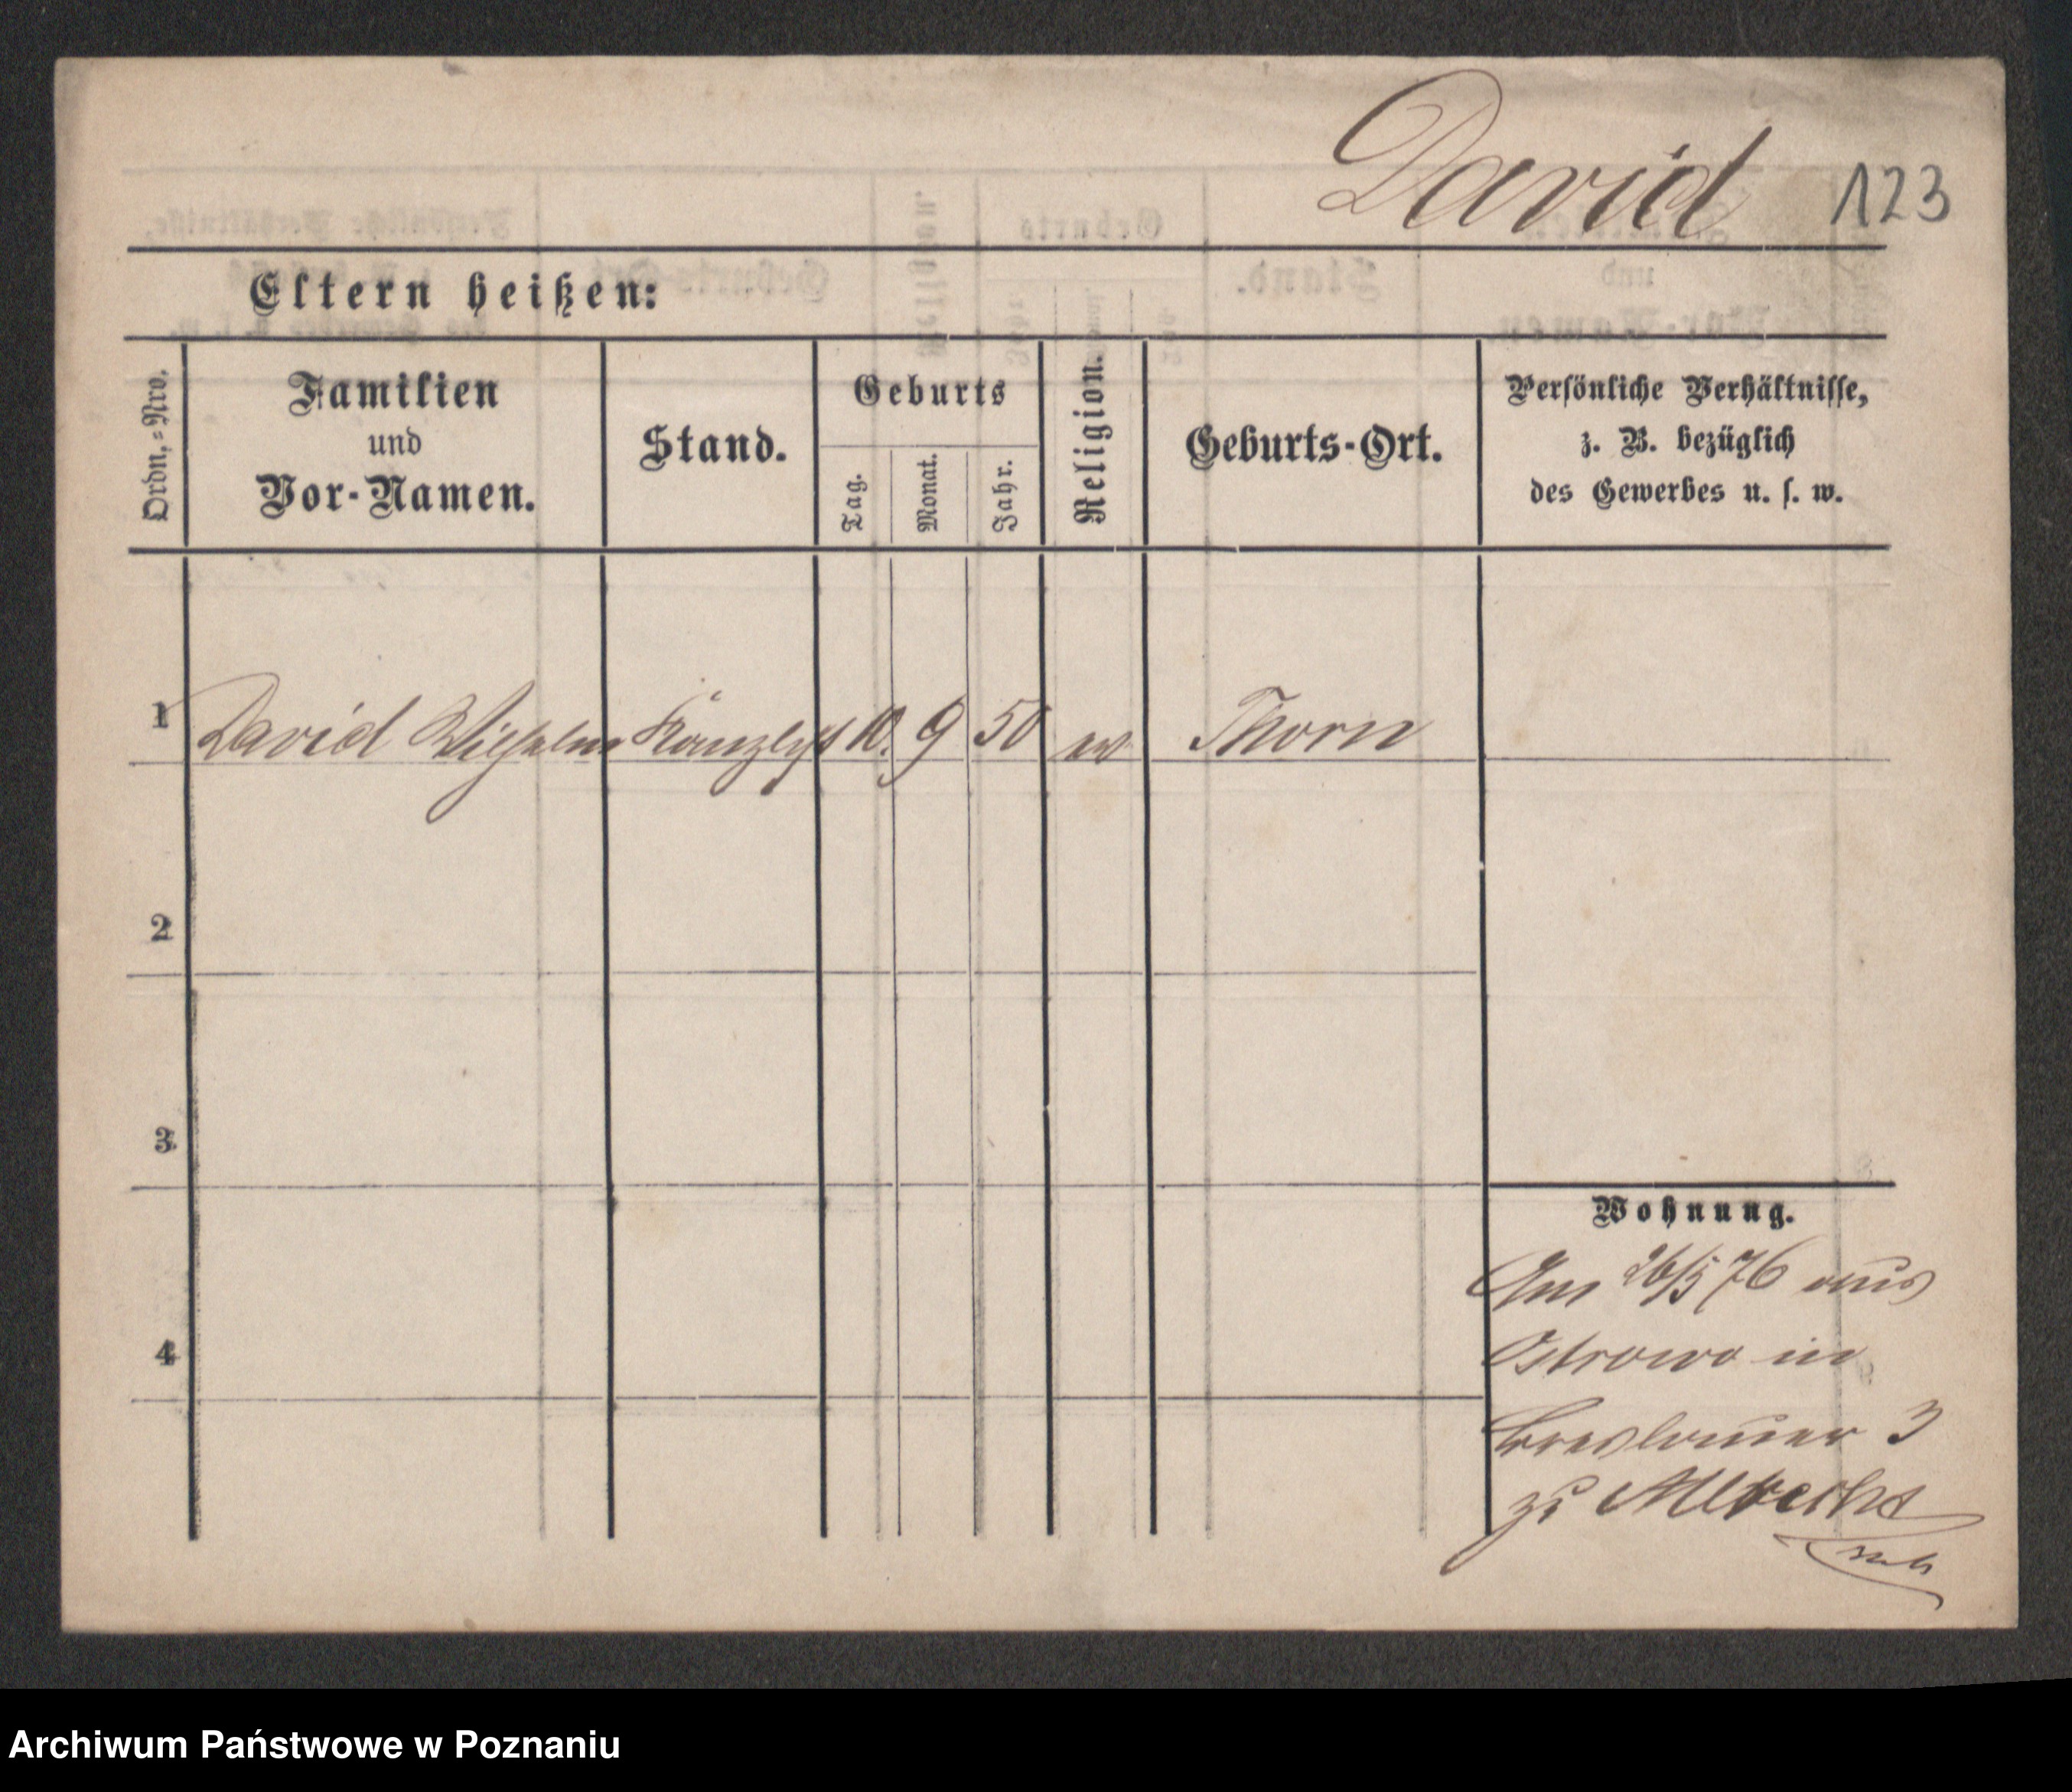 David 123
Eltern heißen:
Ordn.-Nro.
Familien
und
Vor-Namen.
Stand.
Geburts
Tag.
Monat.
Jahr.
Religion.
Geburts-Ort.
Persönliche Verhältnisse,
z. B. bezüglich
des Gewerbes u. s. w.
1 David Wilhelm Kanzlist 10. 9 50 ev Thorn
2
3
4
Wohnung.
Am 26/5 76 aus
Ostrowo in
Breslauer 3
zu Albrecht
Archiwum Państwowe w Poznaniu